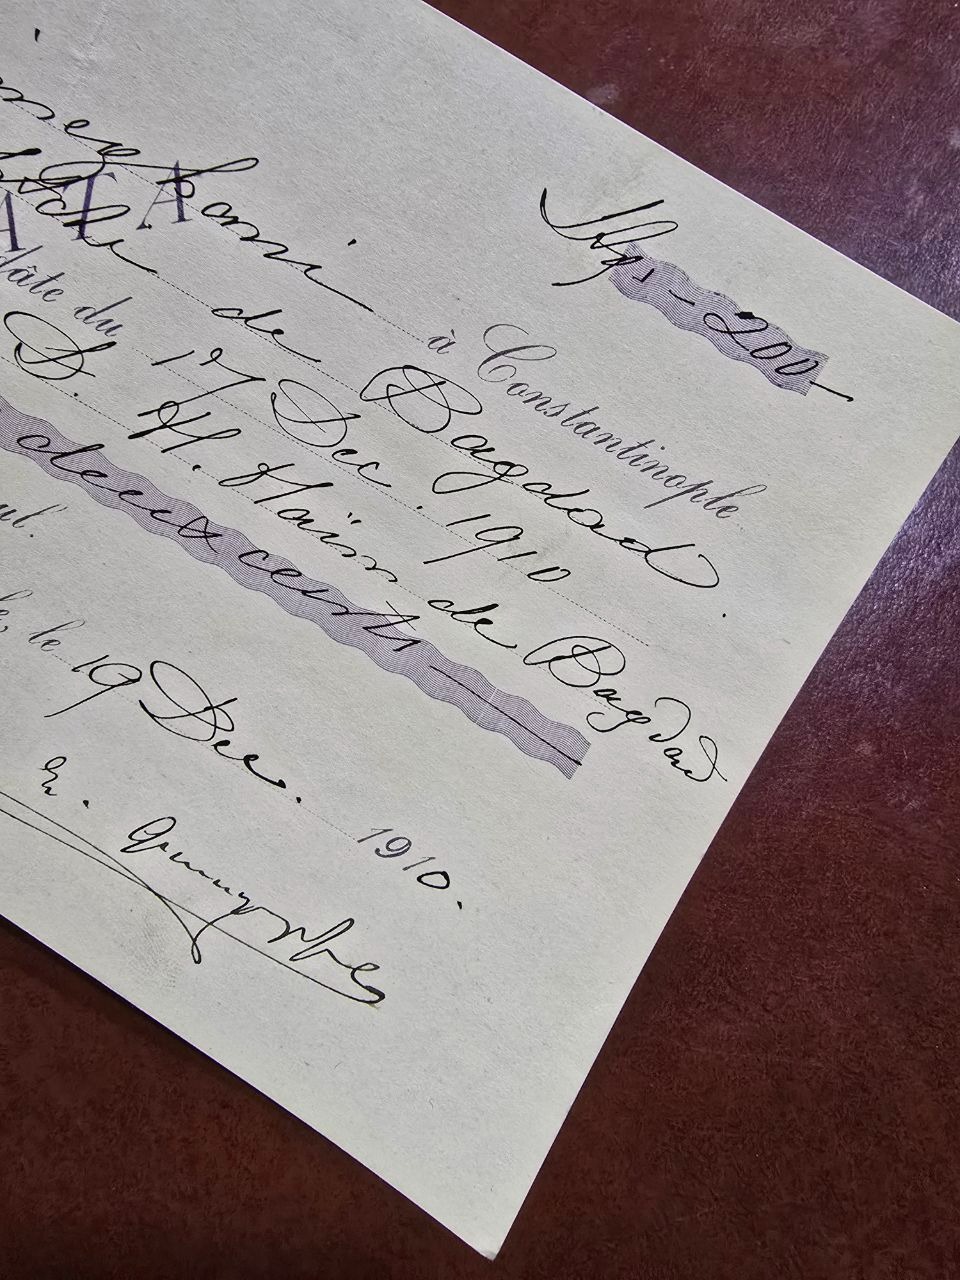 200
Sami à Constantinople
ATA
de Bagdad.
dâte du 17 Dec. 1910
S. H. Haïm de Bagdad
deux cents
le 19 Dec. 1910.